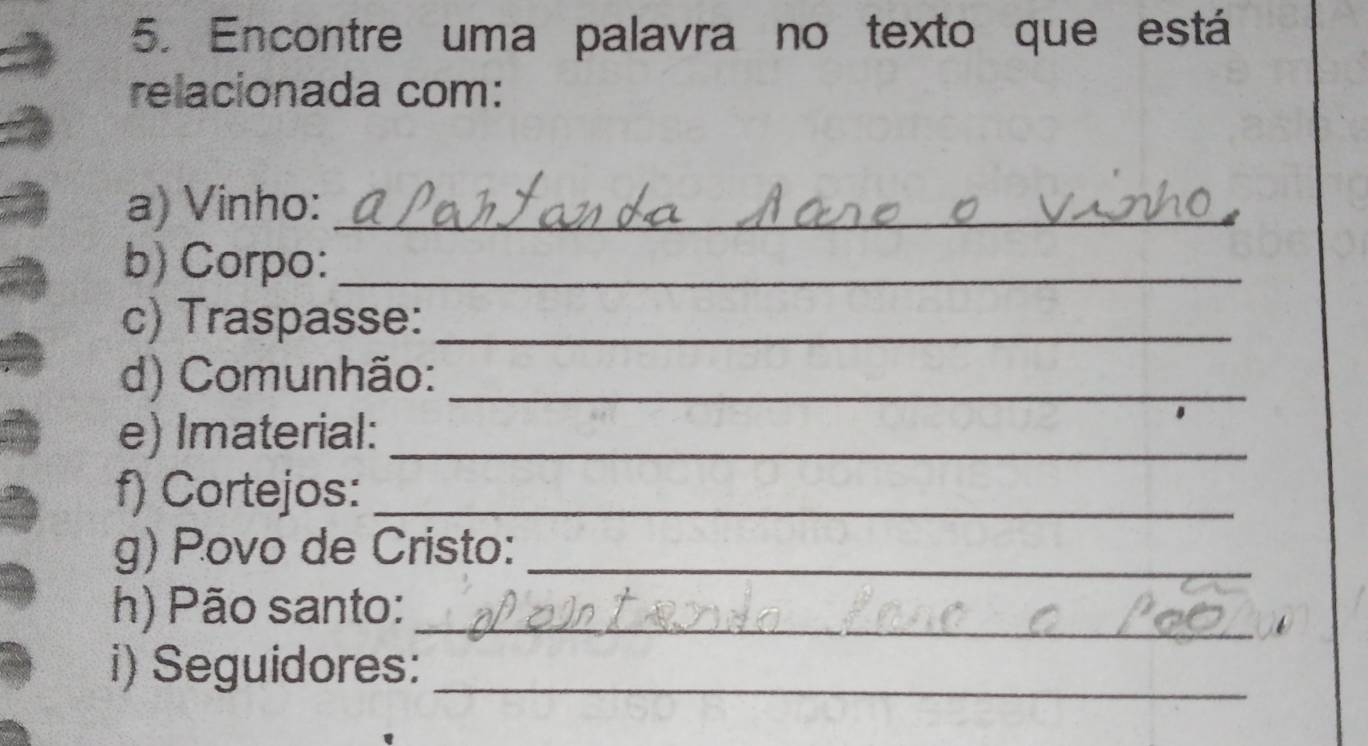 5. Encontre uma palavra no texto que está
relacionada com:
a) Vinho: apantanda para o vinho.
b) Corpo:
c) Traspasse:
d) Comunhão:
e) Imaterial:
f) Cortejos:
g) Povo de Cristo:
h) Pão santo: apontando para o
i) Seguidores: